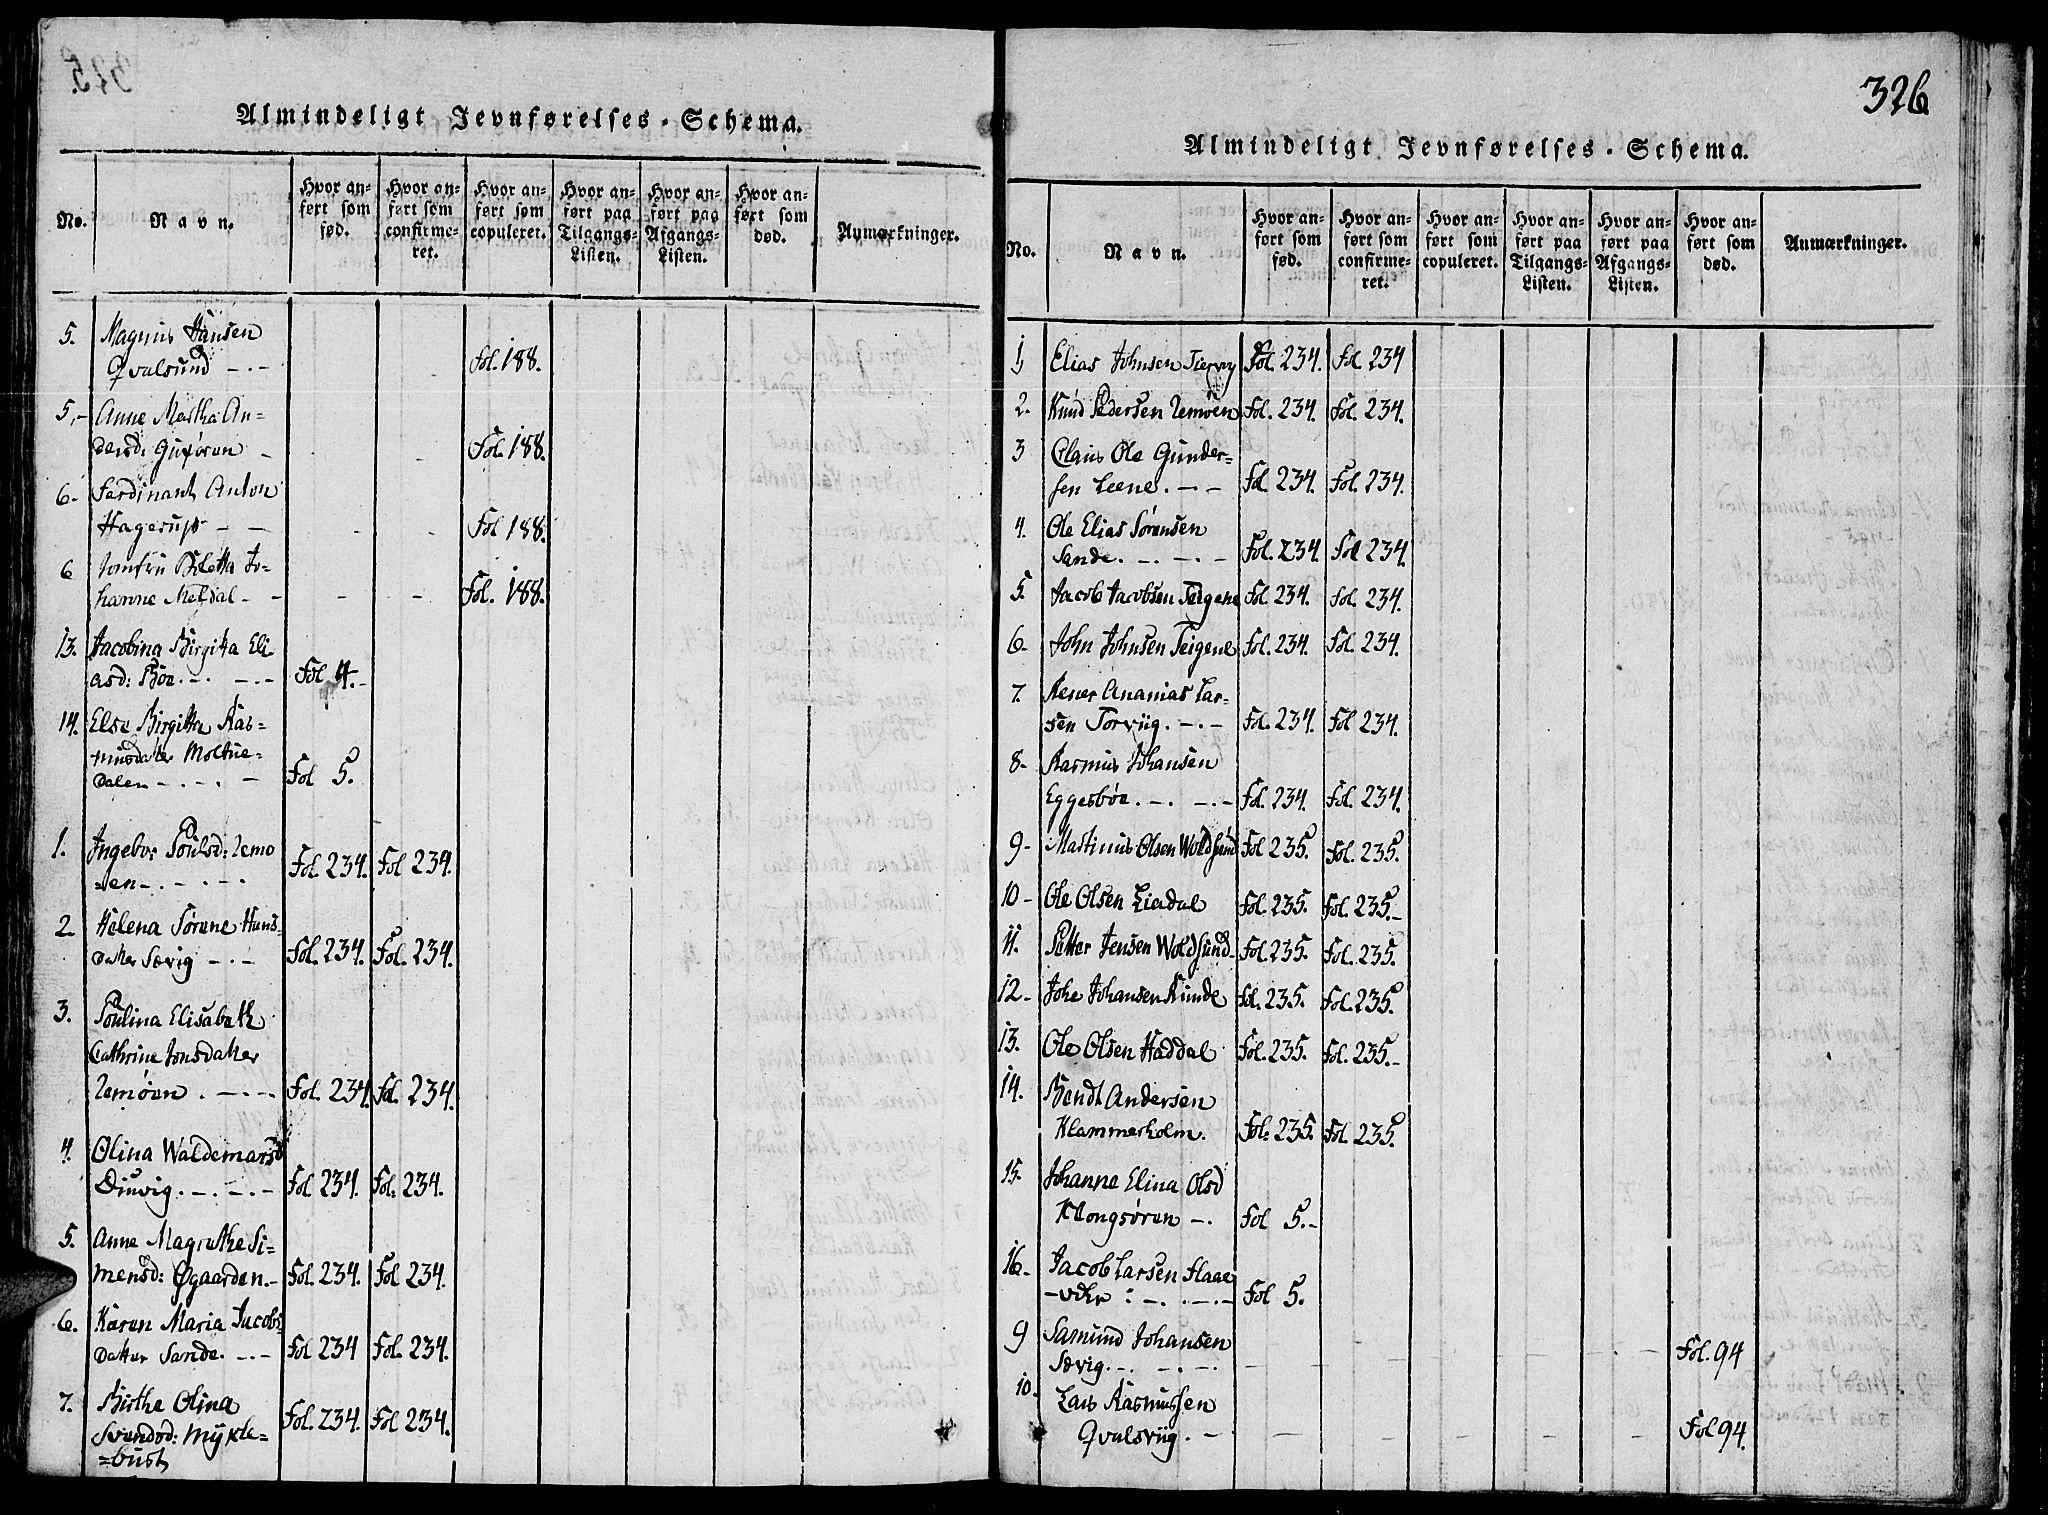 Almindeligt Jevnførelses-Schema.
No.
Navn.
Hvor anført som fød.
Hvor anført som confirmeret.
Hvor anført som copuleret.
Hvor anført paa Tilgangs-Listen.
Hvor anført paa Afgangs-Listen.
Hvor anført som død.
Anmærkninger.
5. Magnus Hansen
Qvalsund -.- Fol. 188.
5,- Anne Martha An=
dersd: Gurøren - Fol. 188.
6- Ferdinant Anton
Hagerup - - Fol 188.
6 Jomfru Boletta Jo-
hanne Meldal - - Fol. 188.
13. Jacobina Birgitta Eli-
asd: Bøe.-. -.- Fol 4.-
14. Else Birgitta Ras-
musdatter Moltue-
dalen -.-.- - Fol 5.
1. Ingebor Poulsd: Remø
en-.-.-.- Fol 234. Fol 234.
2. Helena Sørine Hans-
datter Sævig -.- Fol. 234. Fol. 234.
3. Poulina Elisabeth
Cathrine Jonsdatter
Remøen .-.-. Fol. 234. Fol. 234.
4. Olina Waldemarsd
Dinvig.-.-.- Fol 234. Fol. 234.
5. Anne Magrethe Si-
mensd: Øgaarden.- Fol. 234. Fol 234.
6. Karen Maria Jacobs-
datter Sande.-.- Fol 234 Fol. 234.
7. Birthe Olina
Svendsd: Mykle=
=bust Fol. 234. Fol 234.
326
Almindeligt Jevnførelses-Schema.
No.
Navn.
Hvor anført som fød.
Hvor anført som confirmeret.
Hvor anført som copuleret.
Hvor anført paa Tilgangs-Listen.
Hvor anført paa Afgangs-Listen.
Hvor anført som død.
Anmærkninger.
1, Elias Johnsen Fol. 234. Fol 234
2. Knud Pedersen Remøen Fol. 234. Fol. 234.
3 Claus Ole Gunder-
sen Leene.-.- Fol 234. Fol. 234.
4. Ole Elias Sørensen
Sande.-.-.- Fol. 234 Fol 234.
5. Jacob Jacobsen Teigene Fol 234. Fol. 234.
6. John Johnsen Teigene Fol. 234. Fol. 234.
7. Rener Ananias Lar-
sen Torviig.-.- Fol. 234. Fol 234.
8- Rasmus Johansen
Eggesbøe.-. -.- Fol. 234. Fol. 234.
9- Martinus Olsen Woldsund Fol 235. Fol. 235.
10- Ole Olsen Liadal Fol. 235. Fol. 235.-
11. Petter Jensen Woldsund Fol 235. Fol. 235.
12- Johe Johansen Runde Fol. 235. Fol. 235.
13. Ole Olsen Haddal Fol. 235. Fol. 235.-
14. Bendt Andersen
Klammerholm. Fol: 235. Fol 235.
15. Johanne Elina Olsd
Klongsøren -. Fol 5.-
16- Jacob Larsen Flaae
-vder :-.-.- Fol 5.
9 Samund Johansen
Sævig.-. -.-. Fol. 94
10. Lars Rasmussen
Qvalsviig.- Fol 94.